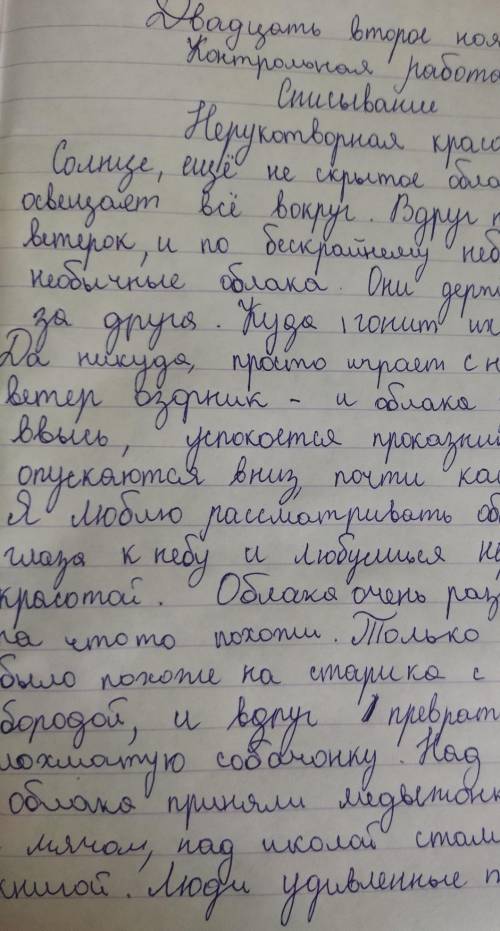 Двадцать второе ноя
Контрольная работа
Списывание
Нерукотворная крас
Солнце, ещё не скрытое обла
освещает всё вокруг. Вдруг п
ветерок, и по бескрайнему неб
необычные облака. Они держ
за друга. Куда гонит их
Да никуда, просто играет с н
ветер озорник - и облака
ввысь, успокоется проказни
опускаются вниз, почти кас
Я люблю рассматривать об
глаза к небу и любуешься не
красотой. Облака очень раз
на что то похожи. Только
было похоже на старика с
бородой, и вдруг преврат
лохматую собачонку. Над
облака приняли медвежонк
мячом, над школой стал
книгой. Люди удивленные п